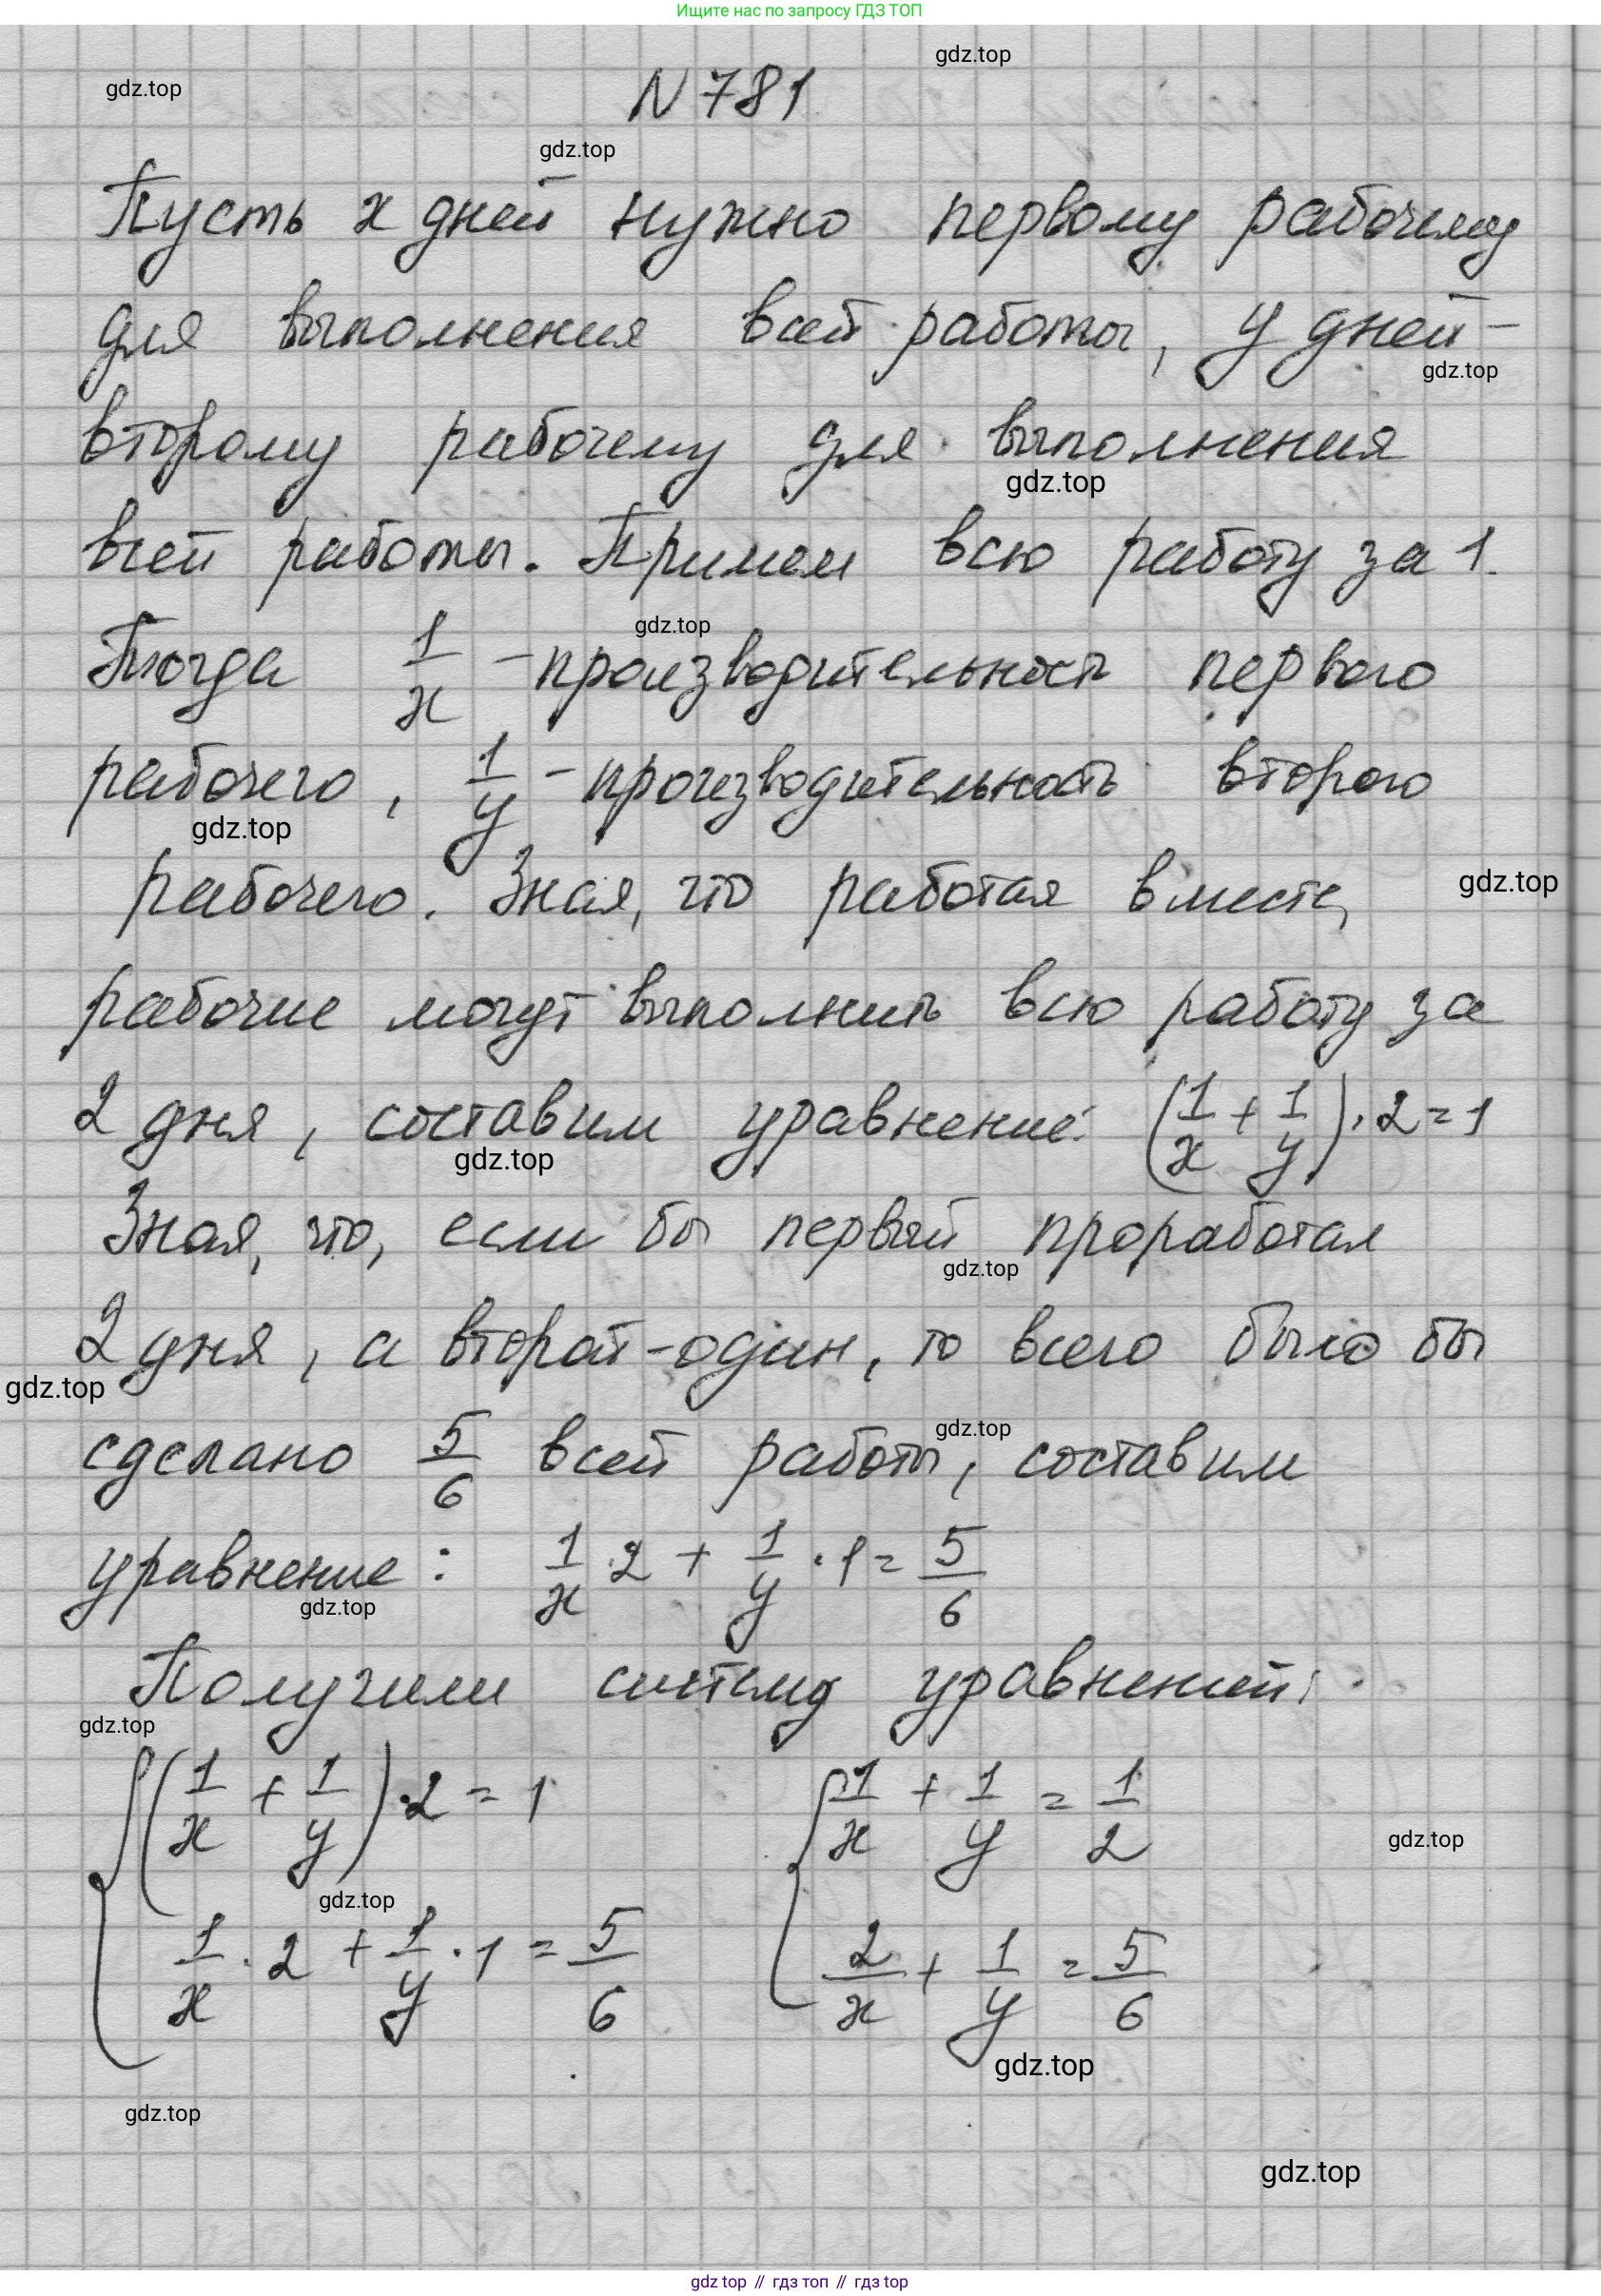 Ищите нас по запросу ГДЗ ТОП
gdz.top
gdz.top
N 781
gdz.top
Пусть x дней нужно первому рабочему
для выполнения всей работы, y дней -
gdz.top
второму рабочему для выполнения
gdz.top
всей работы. Примем всю работу за 1.
gdz.top
Тогда 1/x - производительность первого
рабочего, 1/y - производительность второго
gdz.top
рабочего. Зная, что работая вместе,
gdz.top
рабочие могут выполнить всю работу за
2 дня, составим уравнение: (1/x + 1/y) · 2 = 1
gdz.top
Зная, что, если бы первый проработал
gdz.top
2 дня, а второй - один, то всего было бы
gdz.top
gdz.top
сделано 5/6 всей работы, составим
уравнение: 1/x · 2 + 1/y · 1 = 5/6
gdz.top
Получили систему уравнений:
gdz.top
{ (1/x + 1/y) · 2 = 1 { 1/x + 1/y = 1/2
gdz.top
gdz.top
1/x · 2 + 1/y · 1 = 5/6 2/x + 1/y = 5/6
gdz.top
gdz.top
gdz.top
gdz top // гдз топ // гдз top